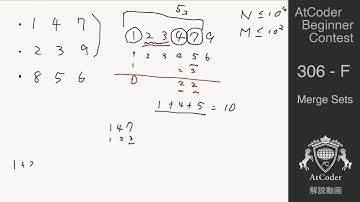 ・ 1 4 7
・ 2 3 9
・ 8 5 6
5₃
1 2 3 4 7 9
1 2 3 4 5 6
1 2 3
0 2 2
1 + 4 + 5 = 10
1 4 7
1 2 3
N ≤ 10⁴
M ≤ 10²
AtCoder
Beginner
Contest
306 - F
Merge Sets
AtCoder
解説動画